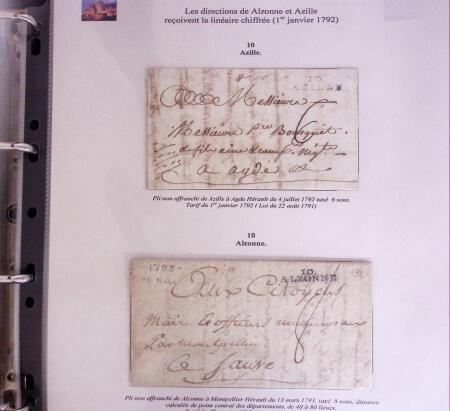 Les directions de Alzonne et Azille
reçoivent la linéaire chiffrée (1er janvier 1792)
10
Azille.
10
AZILLE
Messieurs
Messieurs
a agde
Pli non affranchi de Azille à Agde Hérault du 4 juillet 1792 taxé 6 sous.
Tarif du 1er janvier 1792 ( Loi du 22 août 1791)
10
Alzonne.
1793
10.
ALZONNE
Aux Citoyens
Maire & officiers municipaux
Par Montpellier
a Sauve
8
Pli non affranchi de Alzonne à Montpellier Hérault du 13 mars 1793, taxé 8 sous, distance
calculée de point central des départements, de 40 à 80 lieues.